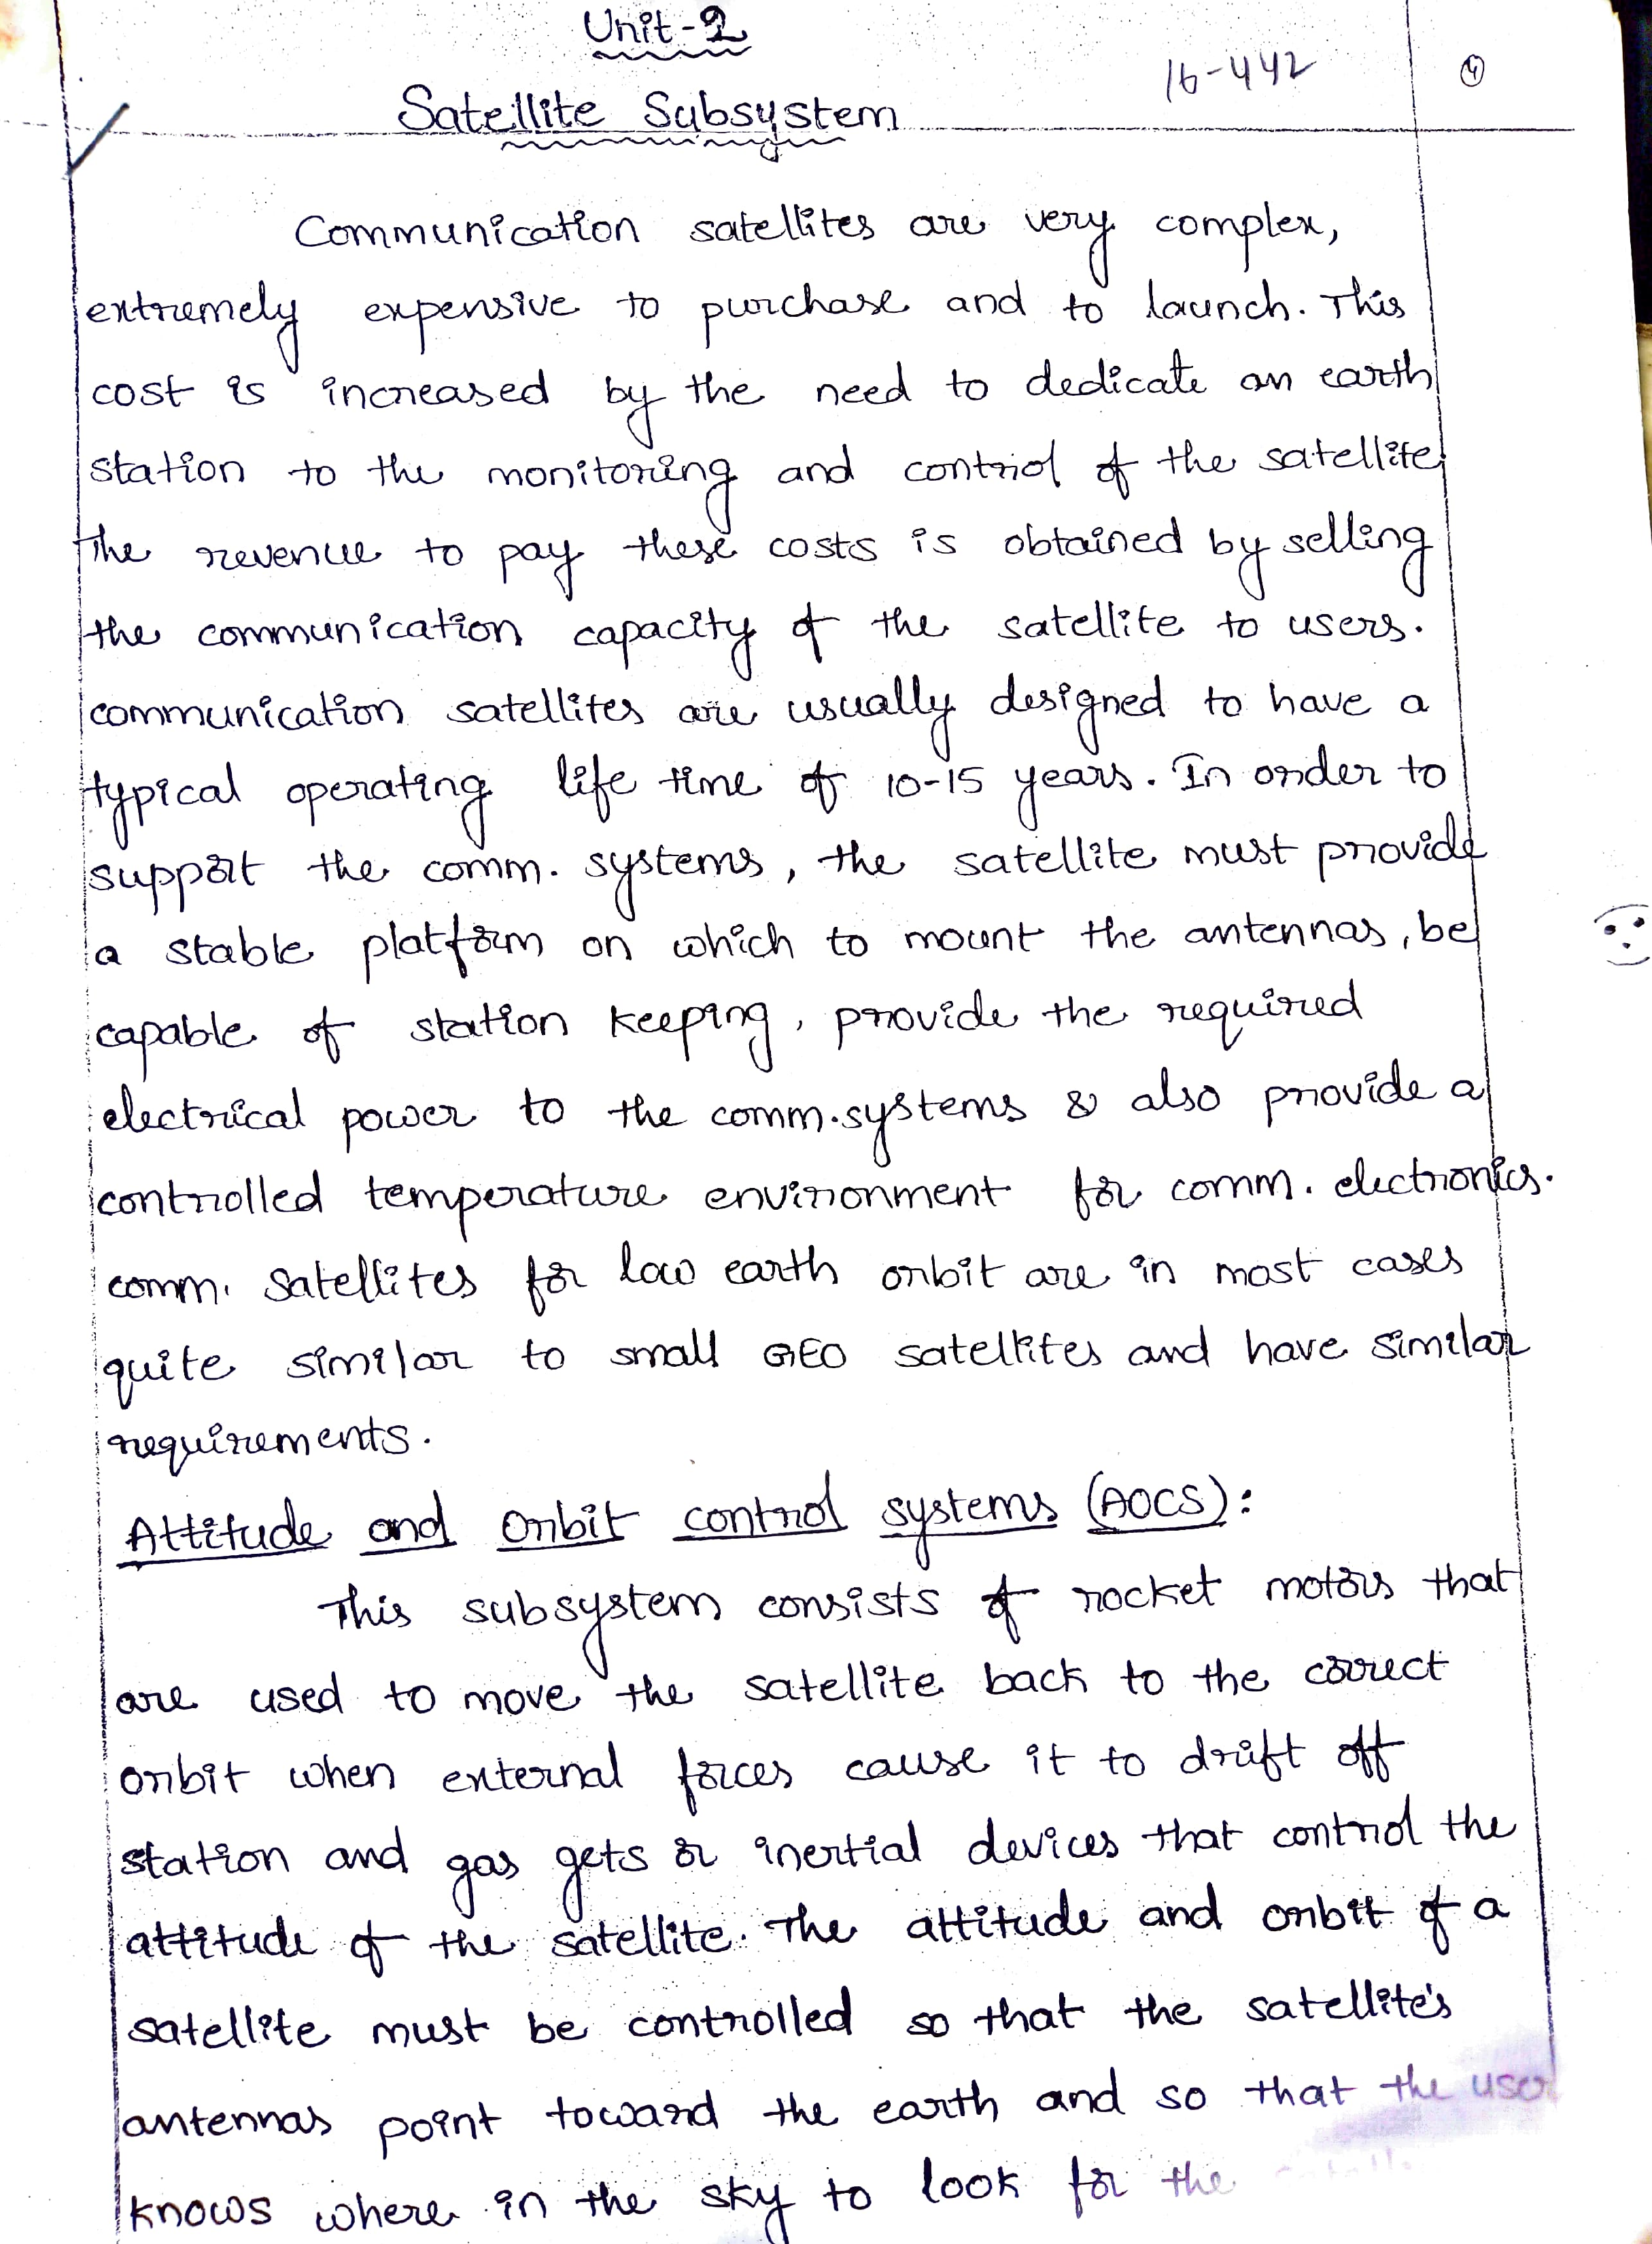 Unit-2
16-442
4
Satellite Subsystem
Communication satellites are very complex,
extremely expensive to purchase and to launch. This
cost is increased by the need to dedicate an earth
station to the monitoring and control of the satellite.
The revenue to pay these costs is obtained by selling
the communication capacity of the satellite to users.
communication satellites are usually designed to have a
typical operating life time of 10-15 years. In order to
support the comm. systems, the satellite must provide
a stable platform on which to mount the antennas, be
capable of station keeping, provide the required
electrical power to the comm. systems & also provide a
controlled temperature environment for comm. electronics.
comm. satellites for low earth orbit are in most cases
quite similar to small GEO satellites and have similar
requirements.
Attitude and Orbit control systems (AOCS):
This subsystem consists of rocket motors that
are used to move the satellite back to the correct
orbit when external forces cause it to drift off
station and gas gets or inertial devices that control the
attitude of the satellite. The attitude and orbit of a
satellite must be controlled so that the satellite's
antennas point toward the earth and so that the user
knows where in the sky to look for the